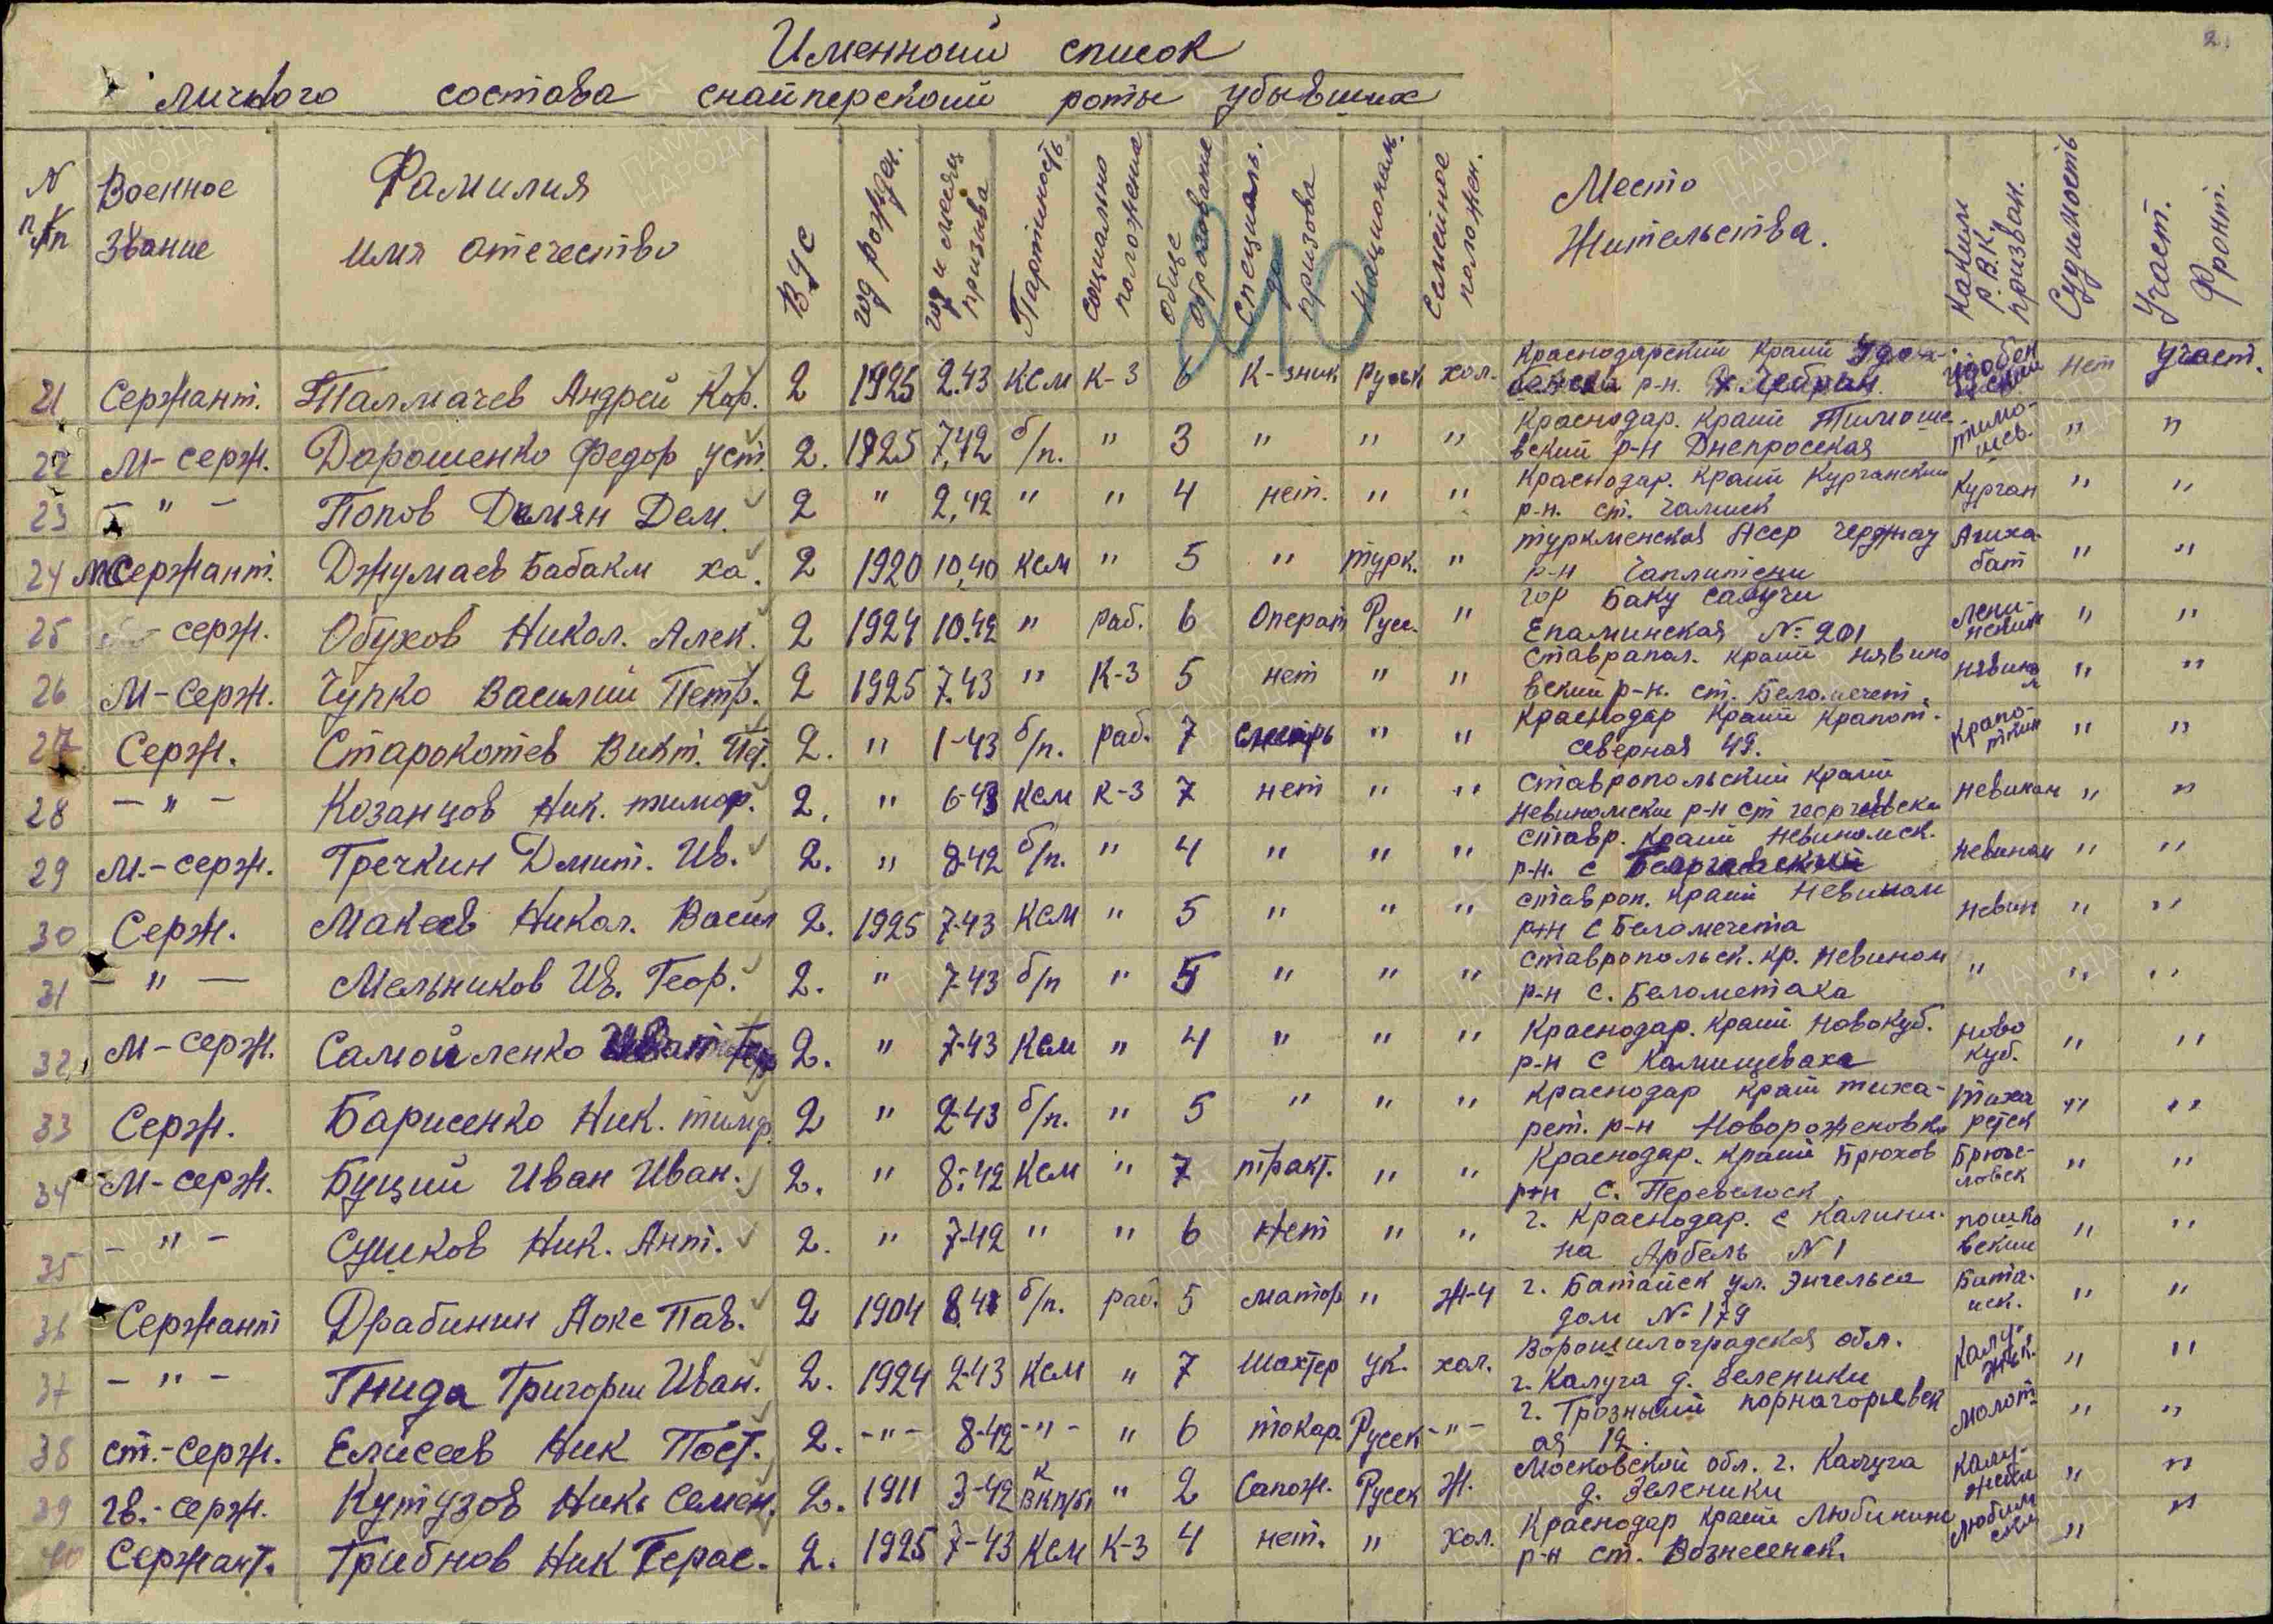 2
Именной список
личного состава снайперской роты убывших
N п/п
Военное звание
Фамилия имя отечество
ВУС
год рожден.
год и месяц призыва
Партийность
социально положение
обще образование
специальн. до призова
национальн.
Семейное положен.
Место Жительства.
Каким Р.В.К. призван.
Судимость
Участ. Фронт.
240
21 Сержант. Талмачев Андрей Кор. 2 1925 2.43 Ксм к-з 6 к-зник Руск хол. Краснодарский край р-н. нет участ.
22 М-серж. Дорошенко Федор Уст. 2. 1925 7,42 б/п. " 3 " " " Краснодар. край Тимоше-
вский р-н Днепросская тимо-шев. " "
23 - " - Попов Демян Дем. 2 " 2,42 " " 4 нет. " " Краснодар. край Курганский
р-н. ст. Чамлык Курган " "
24 М Сержант. Джумаев Бабакм ха. 2 1920 10,40 ксм " 5 " турк. " туркменская Нсср Черджау
р-н Чаплитени Ашха-бат " "
25 серж. Обухов Никол. Алек. 2 1924 10.42 " раб. 6 Операт Русс. " гор Баку сабучи
Епаминская №201 Лени-нский " "
26 М-Серж. Чупко Василий Петр. 2 1925 7.43 " К-З 5 нет " " Ставрапол. край нявино
вский р-н. ст. Бело.мечет. нявином " "
27 Серж. Старокотев Викт. 2. " 1-43 б/п. раб. 7 слесарь " " Краснодар край Крапот.
северная 49. Крапо-ткин " "
28 - " - Козанцов Ник. тимоф. 2. " 6-43 ксм к-з 7 нет " " Ставропольский край
Невиномски р-н ст георгиевска невином " "
29 М.-серж. Гречкин Дмит. Ив. 2. " 8-42 б/п. " 4 " " " Ставр. край Невиномск.
р-н. с Георгиевский невином " "
30 Серж. Макеев Никол. Васил 2. 1925 7-43 Ксм " 5 " " " ставроп. край Невином
р-н с Беломечета невин " "
31 - " - Мельников Ив. Геор. 2. " 7-43 б/п " 5 " " " Ставропольск. кр. Невином
р-н с. Белометака " " "
32 М-серж. Самойленко 2. " 7-43 Ксм " 4 " " " Краснодар. край Новокуб.
р-н с Камищеваха ново куб. " "
33 Серж. Барисенко Ник. тимоф. 2 " 2-43 б/п. " 5 " " " Краснодар край тиха-
рет. р-н Новороженовка тиха рецек " "
34 М-серж. Буций Иван Иван. 2. " 8-42 Ксм " 7 тракт. " " Краснодар. край Брюхов
р-н с. Перевелоск Брюхе-ловск " "
35 - " - Сушков Ник. Ант. 2. " 7-42 " " 6 Нет " " г. Краснодар. с Калини-
на Арбель N 1 пошко вский " "
36 Сержант Драбинин Локс Пав. 2 1904 8.41 б/п. раб. 5 матор " Ж-4 г. Батайск ул. Энгельса
дом №179 Бата-иск. " "
37 - " - Гнида Григории Иван. 2. 1924 2-43 Ксм " 7 Шахтер Ук. хол. Ворошилоградская обл.
г. Калуга д. Зеленики Калу-жск. " "
38 ст.-серж. Елисеев Ник Пост. 2. -"- 8-42 -"- " 6 токар Русск -"- г. Грозный порнагорневск
ая 12. Молот- " "
39 гв.-серж. Кутузов Ник. Семен. 2. 1911 3-42 к ВКП/б/ " 2 Сапож. Русск Ж. Московской обл. г. Калуга
д. Зеленики Калу-жски " "
40 Сержант. Грибнов Ник Герас. 2. 1925 7-43 Ксм К-З 4 нет. " Хол. Краснодар край Любинино
р-н ст. Вознесенск. Любим ски " "
ПАМЯТЬ НАРОДА